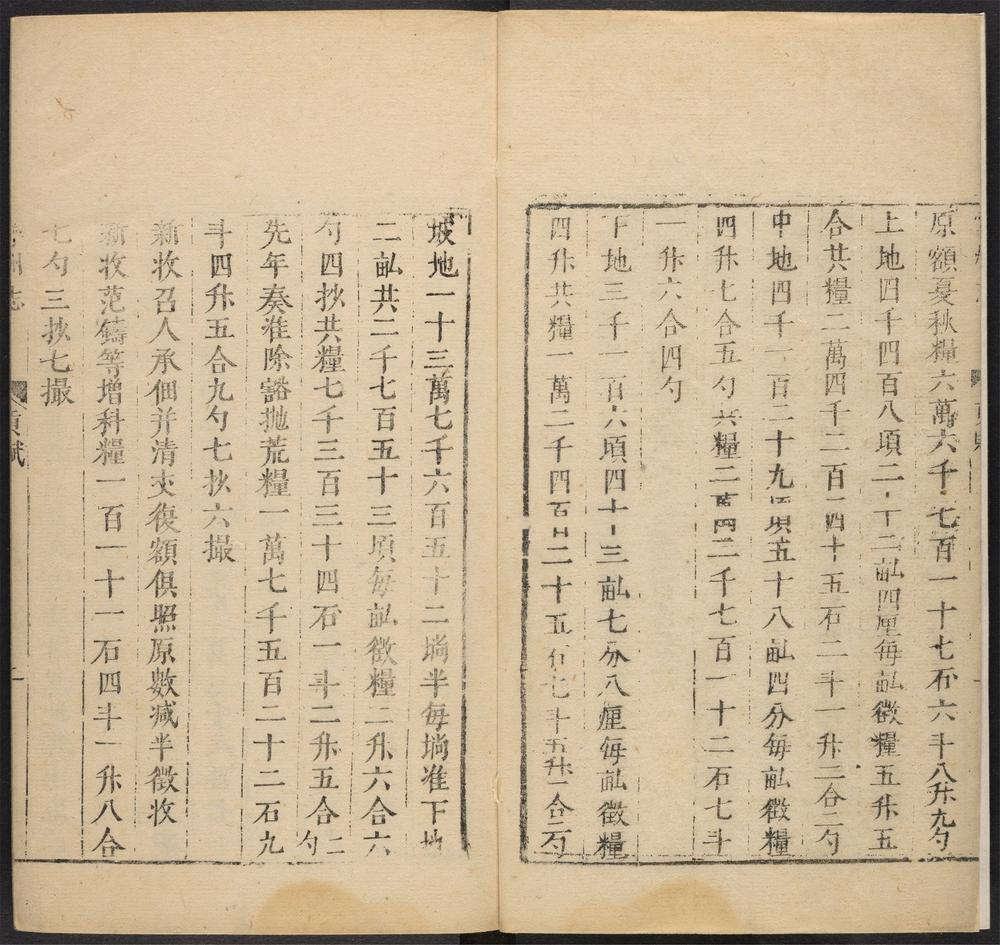 原額夏秋糧六萬六千七百一十七石六斗八升九勺
上地四千四百八頃二十二畝四厘每畝徵糧五升五
合共糧二萬四千二百四十五石二斗一升二合二勺
中地四千一百二十九頃五十八畝四分每畝徵糧
四升七合五勺共糧二萬二千七百一十二石七斗
一升六合四勺
下地三千一百六頃四十三畝七分八厘每畝徵糧
四升共糧一萬二千四百二十五石七斗五升一合二勺
坡地一十三萬七千六百五十二塲半每塲准下地
二畝共二千七百五十三頃每畝徵糧二升六合六
勺四抄共糧七千三百三十四石一斗二升五合二勺
先年奏准除豁拋荒糧一萬七千五百二十二石九
斗四升五合九勺七抄六撮
新收召人承佃并清丈復額俱照原數减半徵收
新收范鑄等增科糧一百一十一石四斗一升八合
七勺三抄七撮
州志 貢賦